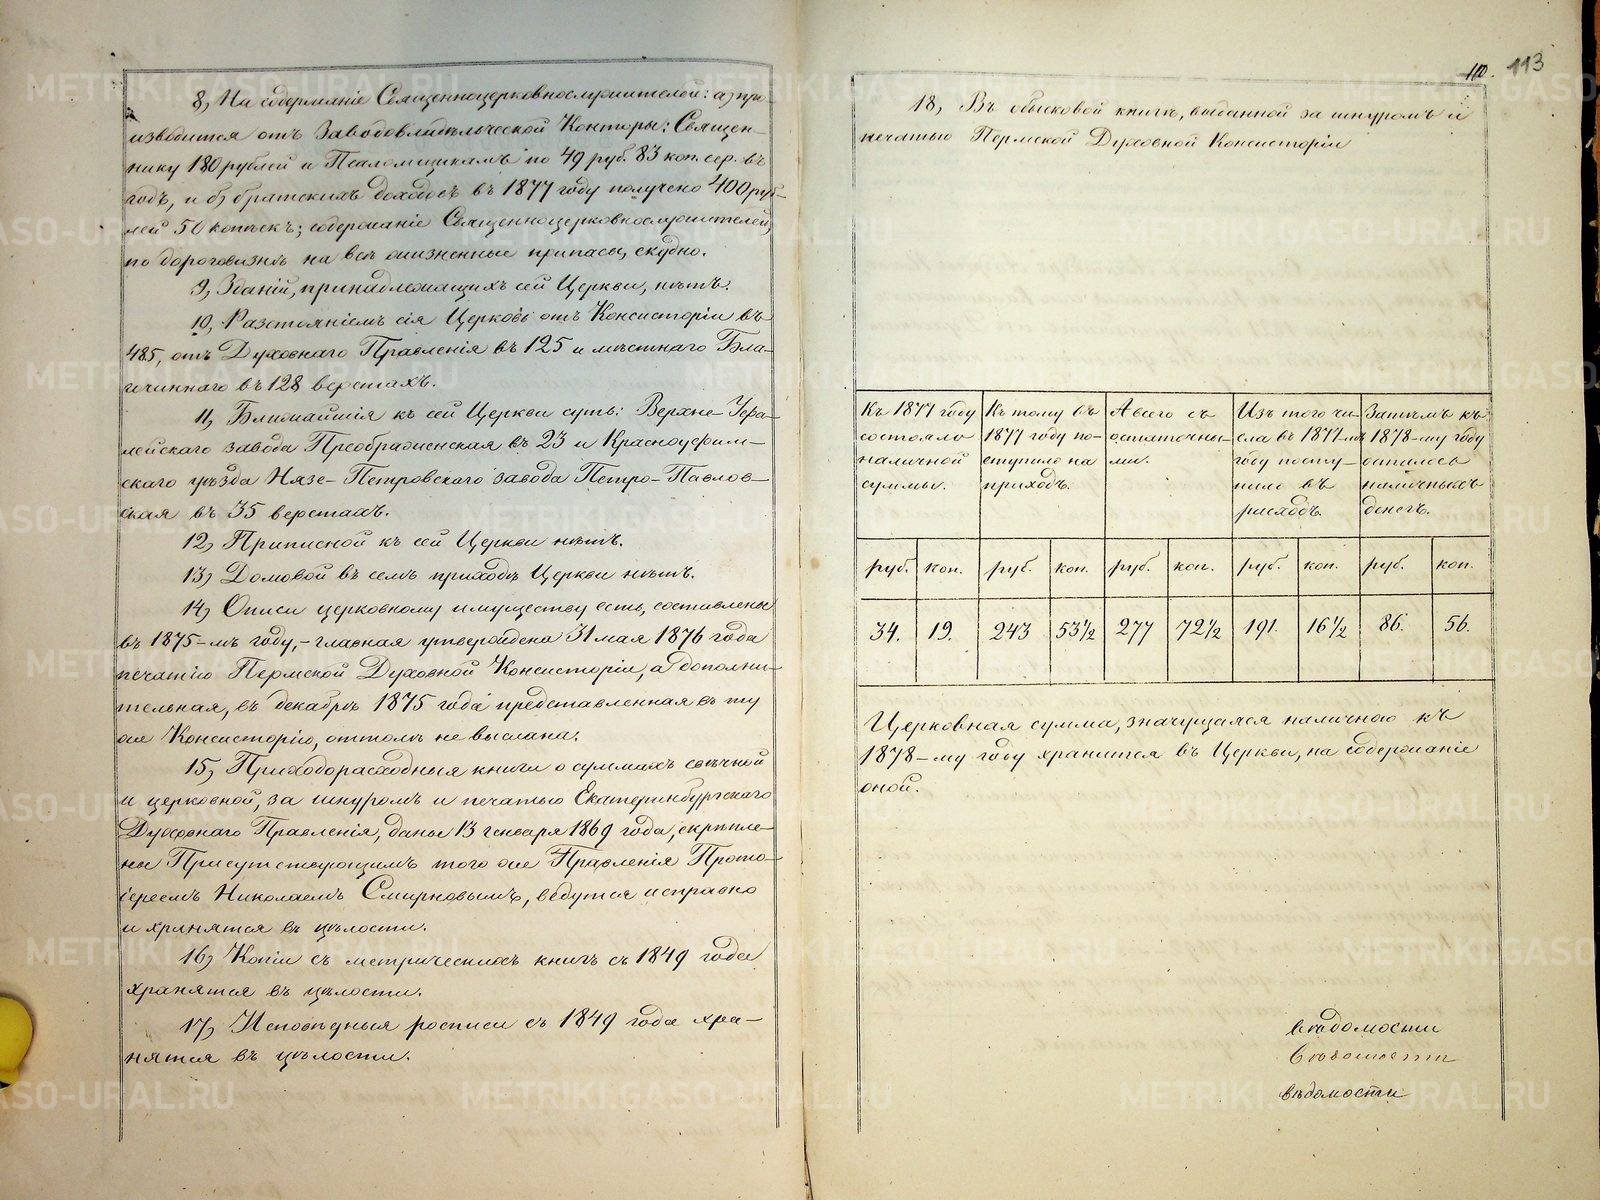 8, На содержаніе Священноцерковнослужителей: а) про-
изводится отъ Заводовладѣльческой Конторы: Священ-
нику 180 рублей и Псаломщикамъ по 49 руб. 83 коп. сер. въ
годъ, и б) братскихъ доходовъ въ 1877 году получено 400 руб-
лей 50 копѣекъ; содержаніе Священноцерковнослужителей,
по дороговизнѣ на всѣ жизненные припасы, скудно.
9, Зданій, принадлежащихъ сей Церкви, нѣтъ.
10, Разстояніемъ сія Церковь отъ Консисторіи въ
485, отъ Духовнаго Правленія въ 125 и мѣстнаго Бла-
гочиннаго въ 128 верстахъ.
11, Ближайшія къ сей Церкви суть: Верхне-Уфа-
лейскаго завода Преображенская въ 23 и Красноуфим-
скаго уѣзда Нязе-Петровскаго завода Петро-Павлов-
ская въ 35 верстахъ.
12, Приписной къ сей Церкви нѣтъ.
13, Домовой въ семъ приходѣ Церкви нѣтъ.
14, Описи церковному имуществу есть, составлены
въ 1875-мъ году,- главная утверждена 31 мая 1876 года
печатію Пермской Духовной Консисторіи, а дополни-
тельная, въ декабрѣ 1875 года представленная въ ту
же Консисторію, оттолѣ не выслана.
15, Приходорасходныя книги о суммахъ свѣчной
и церковной, за шнуромъ и печатью Екатеринбургскаго
Духовнаго Правленія, даны 13 генваря 1869 года, скрѣпле-
ны Присутствующимъ того же Правленія Прото-
іереемъ Николаемъ Смирновымъ, ведутся исправно
и хранятся въ цѣлости.
16, Копіи съ метрическихъ книгъ съ 1849 года
хранятся въ цѣлости.
17, Исповѣдныя росписи съ 1849 года хра-
нятся въ цѣлости.
110. 113
18, Въ обысковой книгѣ, выданной за шнуромъ и
печатью Пермской Духовной Консисторіи
Къ 1877 году
состояло
наличной
суммы.
Къ тому въ
1877 году по-
ступило на
приходъ.
А всего съ
остаточны-
ми.
Изъ того чи-
сла въ 1877-мъ
году посту-
пило въ
расходъ.
Затѣмъ къ
1878-му году
осталось
наличныхъ
денегъ.
руб. коп. руб. коп. руб. коп. руб. коп. руб. коп.
34. 19. 243 53½ 277 72½ 191. 16½ 86. 56.
Церковная сумма, значущаяся наличною къ
1878-му году хранится въ Церкви, на содержаніе
оной.
вѣдомости
Вѣдомости
вѣдомости
METRIKI.GASO-URAL.RU